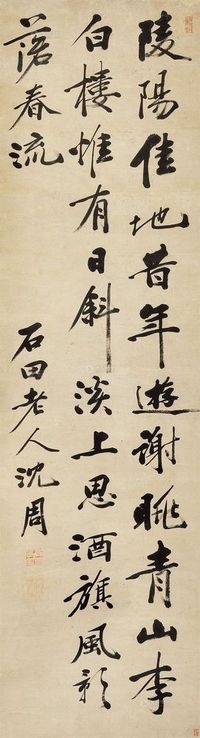 陵陽佳地昔年遊謝眺青山李
白樓惟有日斜溪上思酒旗風影
落春流
石田老人沈周